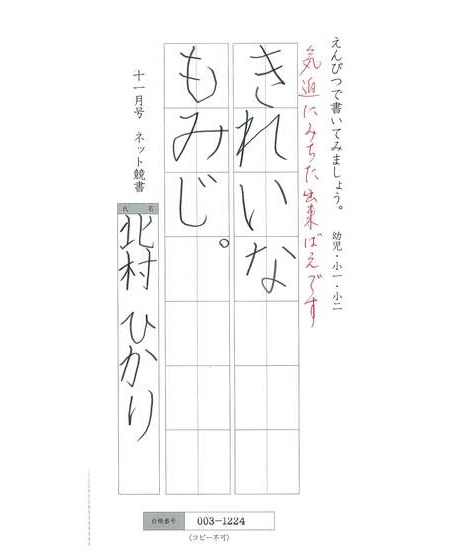 えんぴつで書いてみましょう。 幼児・小一・小二
気迫にみちた出来ばえです
きれいな
もみじ。
十一月号 ネット競書
氏名
北村 ひかり
台帳番号 003-1224
(コピー不可)